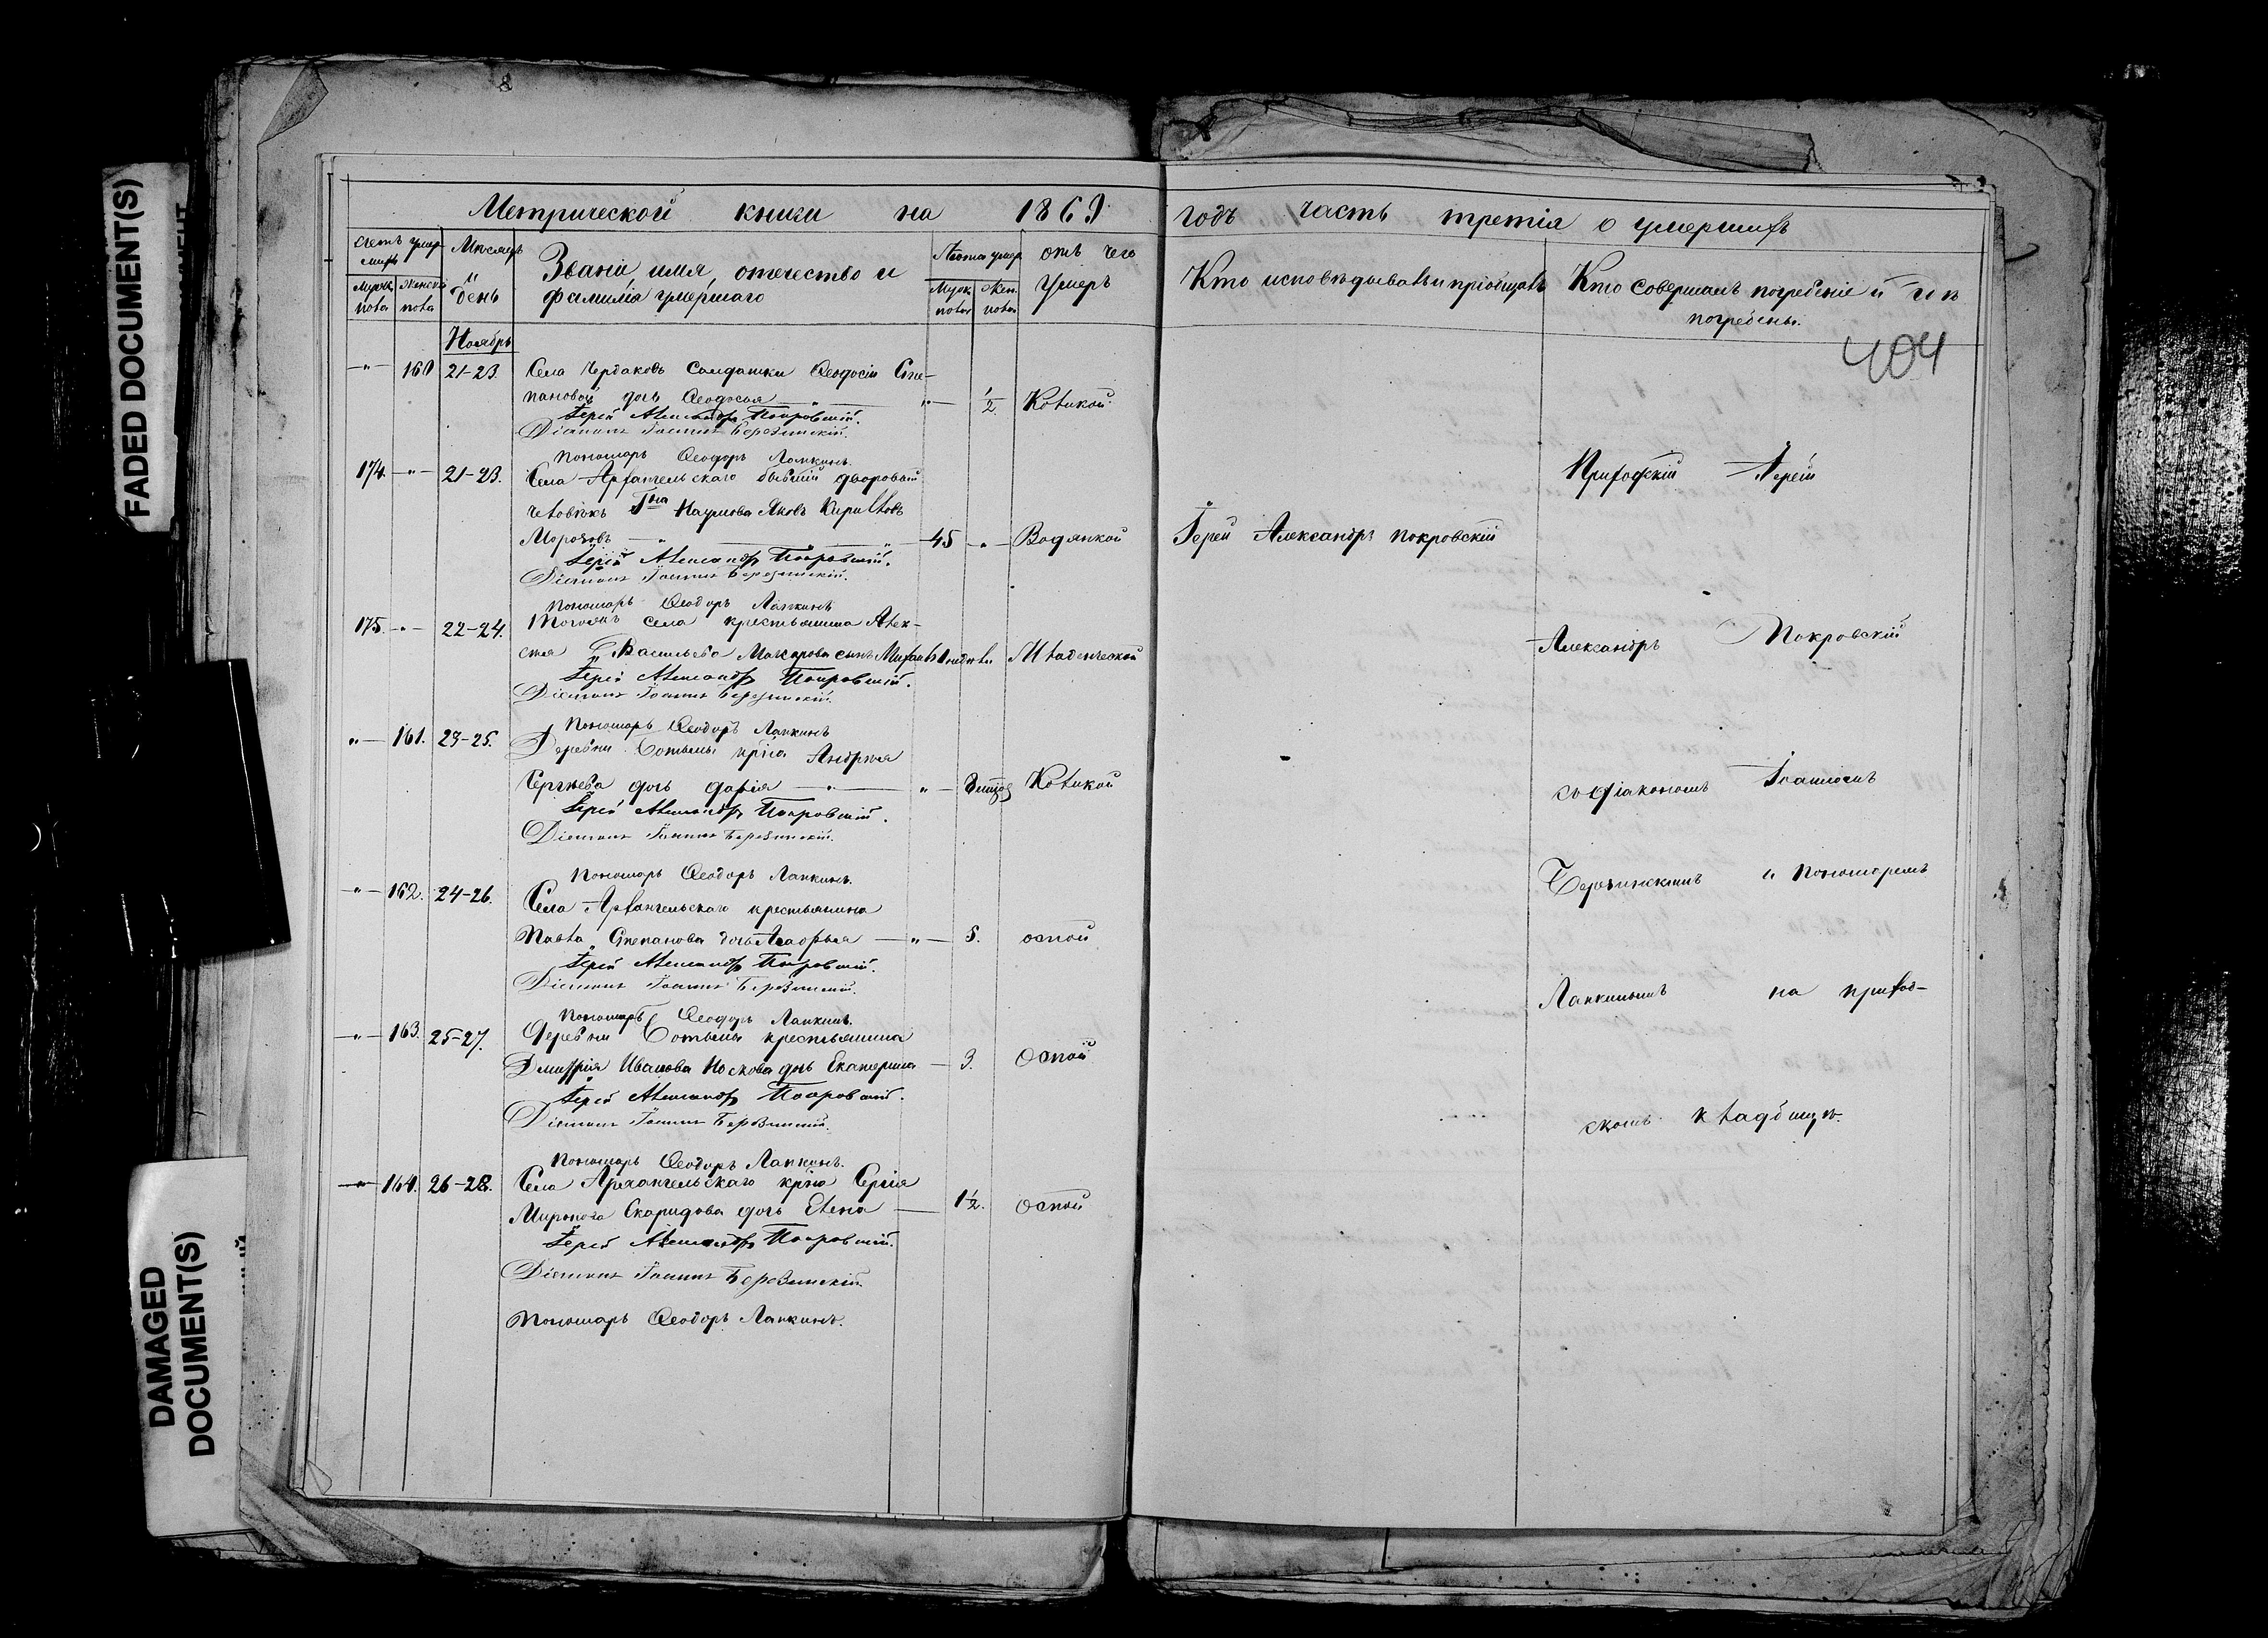 FADED DOCUMENT(S)
DAMAGED DOCUMENT(S)
Метрической книги на 1869 годъ часть третія о умершихъ
Счетъ умершихъ
Мужеска пола
Женска пола
Мѣсяцъ и день
Званіе, имя, отечество и
фамилія умершаго
Лѣта умер
Муж. пола
Жен. пола
отъ чего
умеръ
Кто исповѣдывалъ и пріобщалъ
Кто совершалъ погребеніе и гдѣ
погребены.
404
Ноябрь
-"- 160 21-23. Села Чердаковъ солдатки Ѳеодосіи Сте-
пановой дочь Ѳеодосія " 1/2. Коликой
Іерей Александръ Покровскій.
Діаконъ Іоаннъ Березинскій.
Пономарь Ѳеодоръ Лапкинъ.
174. -"- 21-23. Села Архангельскаго бывшій дворовый
человѣкъ Г-на Наумова Яковъ Кириловъ
Морозовъ 45 -"- Водянкой Іерей Александръ Покровскій
Іерей Александръ Покровскій.
Діаконъ Іоаннъ Березинскій.
Пономарь Ѳеодоръ Лапкинъ
175. -"- 22-24. Тогожъ села крестьянина Алек-
сѣя Васильева Макарова сынъ Михаилъ 1 недѣли Младенческой
Іерей Александръ Покровскій.
Діаконъ Іоаннъ Березинскій.
Пономарь Ѳеодоръ Лапкинъ
"- 161. 23-25. Деревни Ботьмы кр-на Андрея
Сергѣева дочь Дарія " Коликой
Іерей Александръ Покровскій.
Діаконъ Іоаннъ Березинскій.
Пономарь Ѳеодоръ Лапкинъ.
-"- 162. 24-26. Села Архангельскаго крестьянина
Павла Степанова дочь -"- 5. оспой
Іерей Александръ Покровскій.
Діаконъ Іоаннъ Березинскій.
Пономарь Ѳеодоръ Лапкинъ.
-"- 163. 25-27. Деревни Ботьмы крестьянина
Димитрія Иванова Носкова дочь Екатерина - 3. Оспой
Іерей Александръ Покровскій.
Діаконъ Іоаннъ Березинскій.
Пономарь Ѳеодоръ Лапкинъ.
-"- 164. 26-28. Села Архангельскаго кр-на Сергія
Миронова Скаридова дочь Елена 1 1/2. Оспой
Іерей Александръ Покровскій.
Діаконъ Іоаннъ Березинскій.
Пономарь Ѳеодоръ Лапкинъ.
Приходскій Іерей
Александръ Покровскій
съ діакономъ Іоанномъ
Березинскимъ и пономаремъ
Лапкинымъ на приход-
скомъ кладбищѣ.